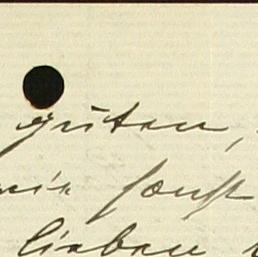 guten,
wie sonst
lieben